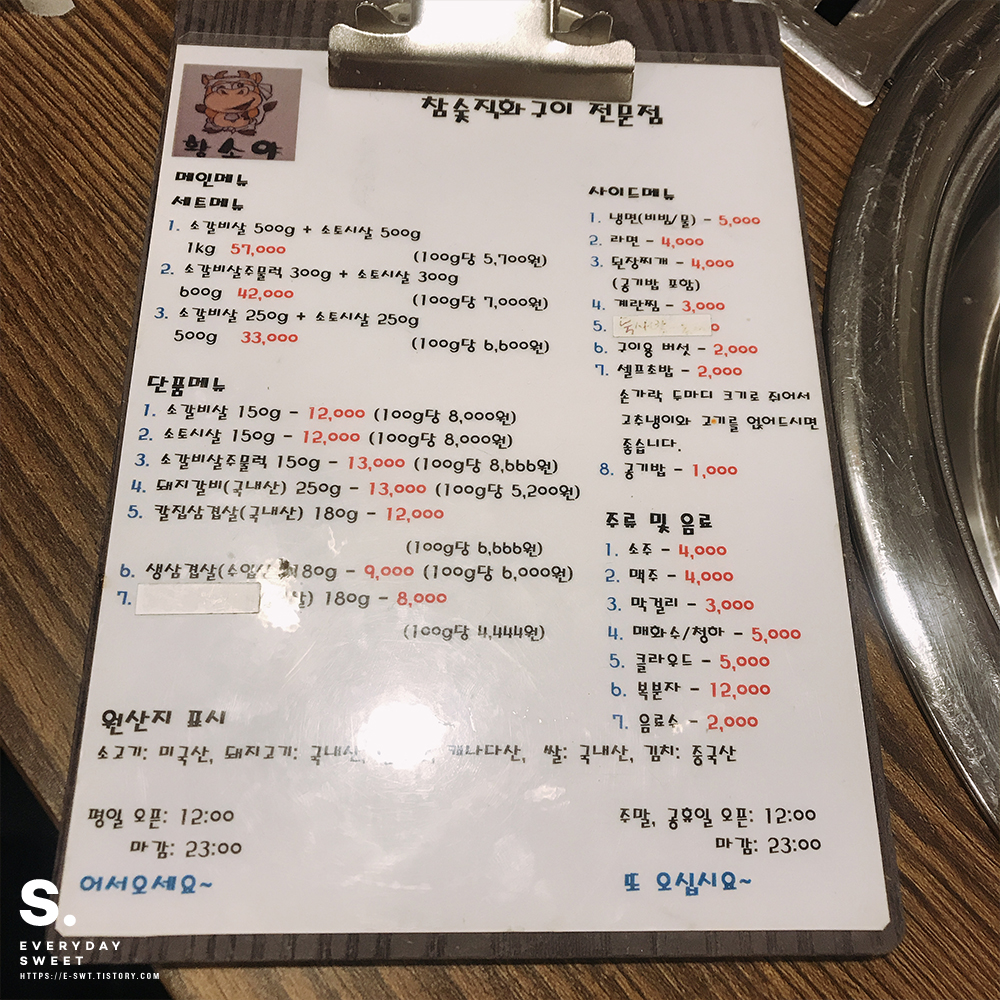 황소야
참숯직화구이 전문점
메인메뉴
세트메뉴
1. 소갈비살 500g + 소토시살 500g
1kg 57,000 (100g당 5,700원)
2. 소갈비살주물럭 300g + 소토시살 300g
600g 42,000 (100g당 7,000원)
3. 소갈비살 250g + 소토시살 250g
500g 33,000 (100g당 6,600원)
단품메뉴
1. 소갈비살 150g - 12,000 (100g당 8,000원)
2. 소토시살 150g - 12,000 (100g당 8,000원)
3. 소갈비살주물럭 150g - 13,000 (100g당 8,666원)
4. 돼지갈비(국내산) 250g - 13,000 (100g당 5,200원)
5. 칼집삼겹살(국내산) 180g - 12,000
(100g당 6,666원)
6. 생삼겹살(수입산) 180g - 9,000 (100g당 6,000원)
7. 180g - 8,000
(100g당 4,444원)
사이드메뉴
1. 냉면(비빔/물) - 5,000
2. 라면 - 4,000
3. 된장찌개 - 4,000
(공기밥 포함)
4. 계란찜 - 3,000
5.
6. 구이용 버섯 - 2,000
7. 셀프초밥 - 2,000
손가락 두마디 크기로 쥐어서
고추냉이와 고기를 얹어드시면
좋습니다.
8. 공기밥 - 1,000
주류 및 음료
1. 소주 - 4,000
2. 맥주 - 4,000
3. 막걸리 - 3,000
4. 매화수/청하 - 5,000
5. 클라우드 - 5,000
6. 복분자 - 12,000
7. 음료수 - 2,000
원산지 표시
소고기: 미국산, 돼지고기: 국내산, 캐나다산, 쌀: 국내산, 김치: 중국산
평일 오픈: 12:00
마감: 23:00
주말, 공휴일 오픈: 12:00
마감: 23:00
어서오세요~
또 오십시요~
S.
EVERYDAY
SWEET
HTTPS://E-SWT.TISTORY.COM